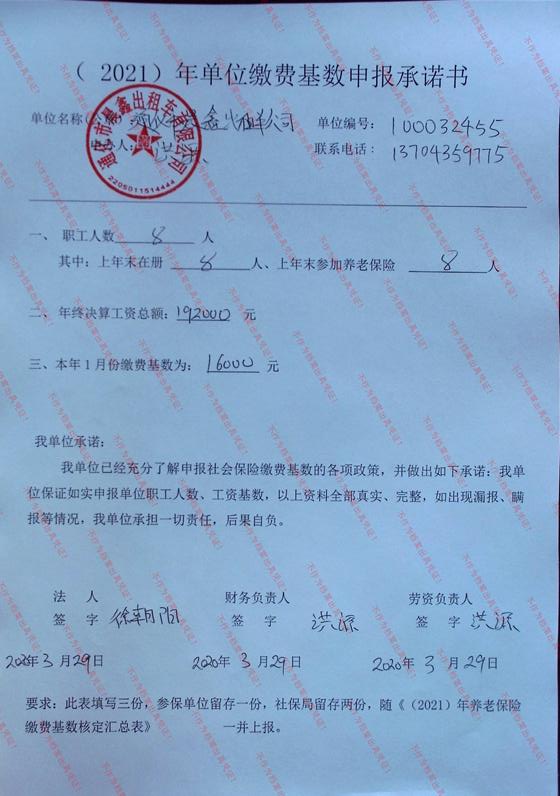 （ 2021）年单位缴费基数申报承诺书
单位名称（公章）：通化市晨鑫出租车公司 单位编号： 100032455
申办人： 联系电话： 13704359775
通化市晨鑫出租车有限公司
2205011514444
一、 职工人数 8 人
其中：上年末在册 8 人、上年末参加养老保险 8 人
二、 年终决算工资总额：192000 元
三、本年 1 月份缴费基数为： 16000 元
我单位承诺：
我单位已经充分了解申报社会保险缴费基数的各项政策，并做出如下承诺：我单
位保证如实申报单位职工人数、工资基数，以上资料全部真实、完整，如出现漏报、瞒
报等情况，我单位承担一切责任，后果自负。
法 人 财务负责人 劳资负责人
签 字 徐朝阳 签 字 洪源 签 字 洪源
2020年 3 月 29 日 2020年 3 月 29 日 2020年 3 月 29 日
要求：此表填写三份，参保单位留存一份，社保局留存两份，随《（2021）年养老保险
缴费基数核定汇总表》 一并上报。